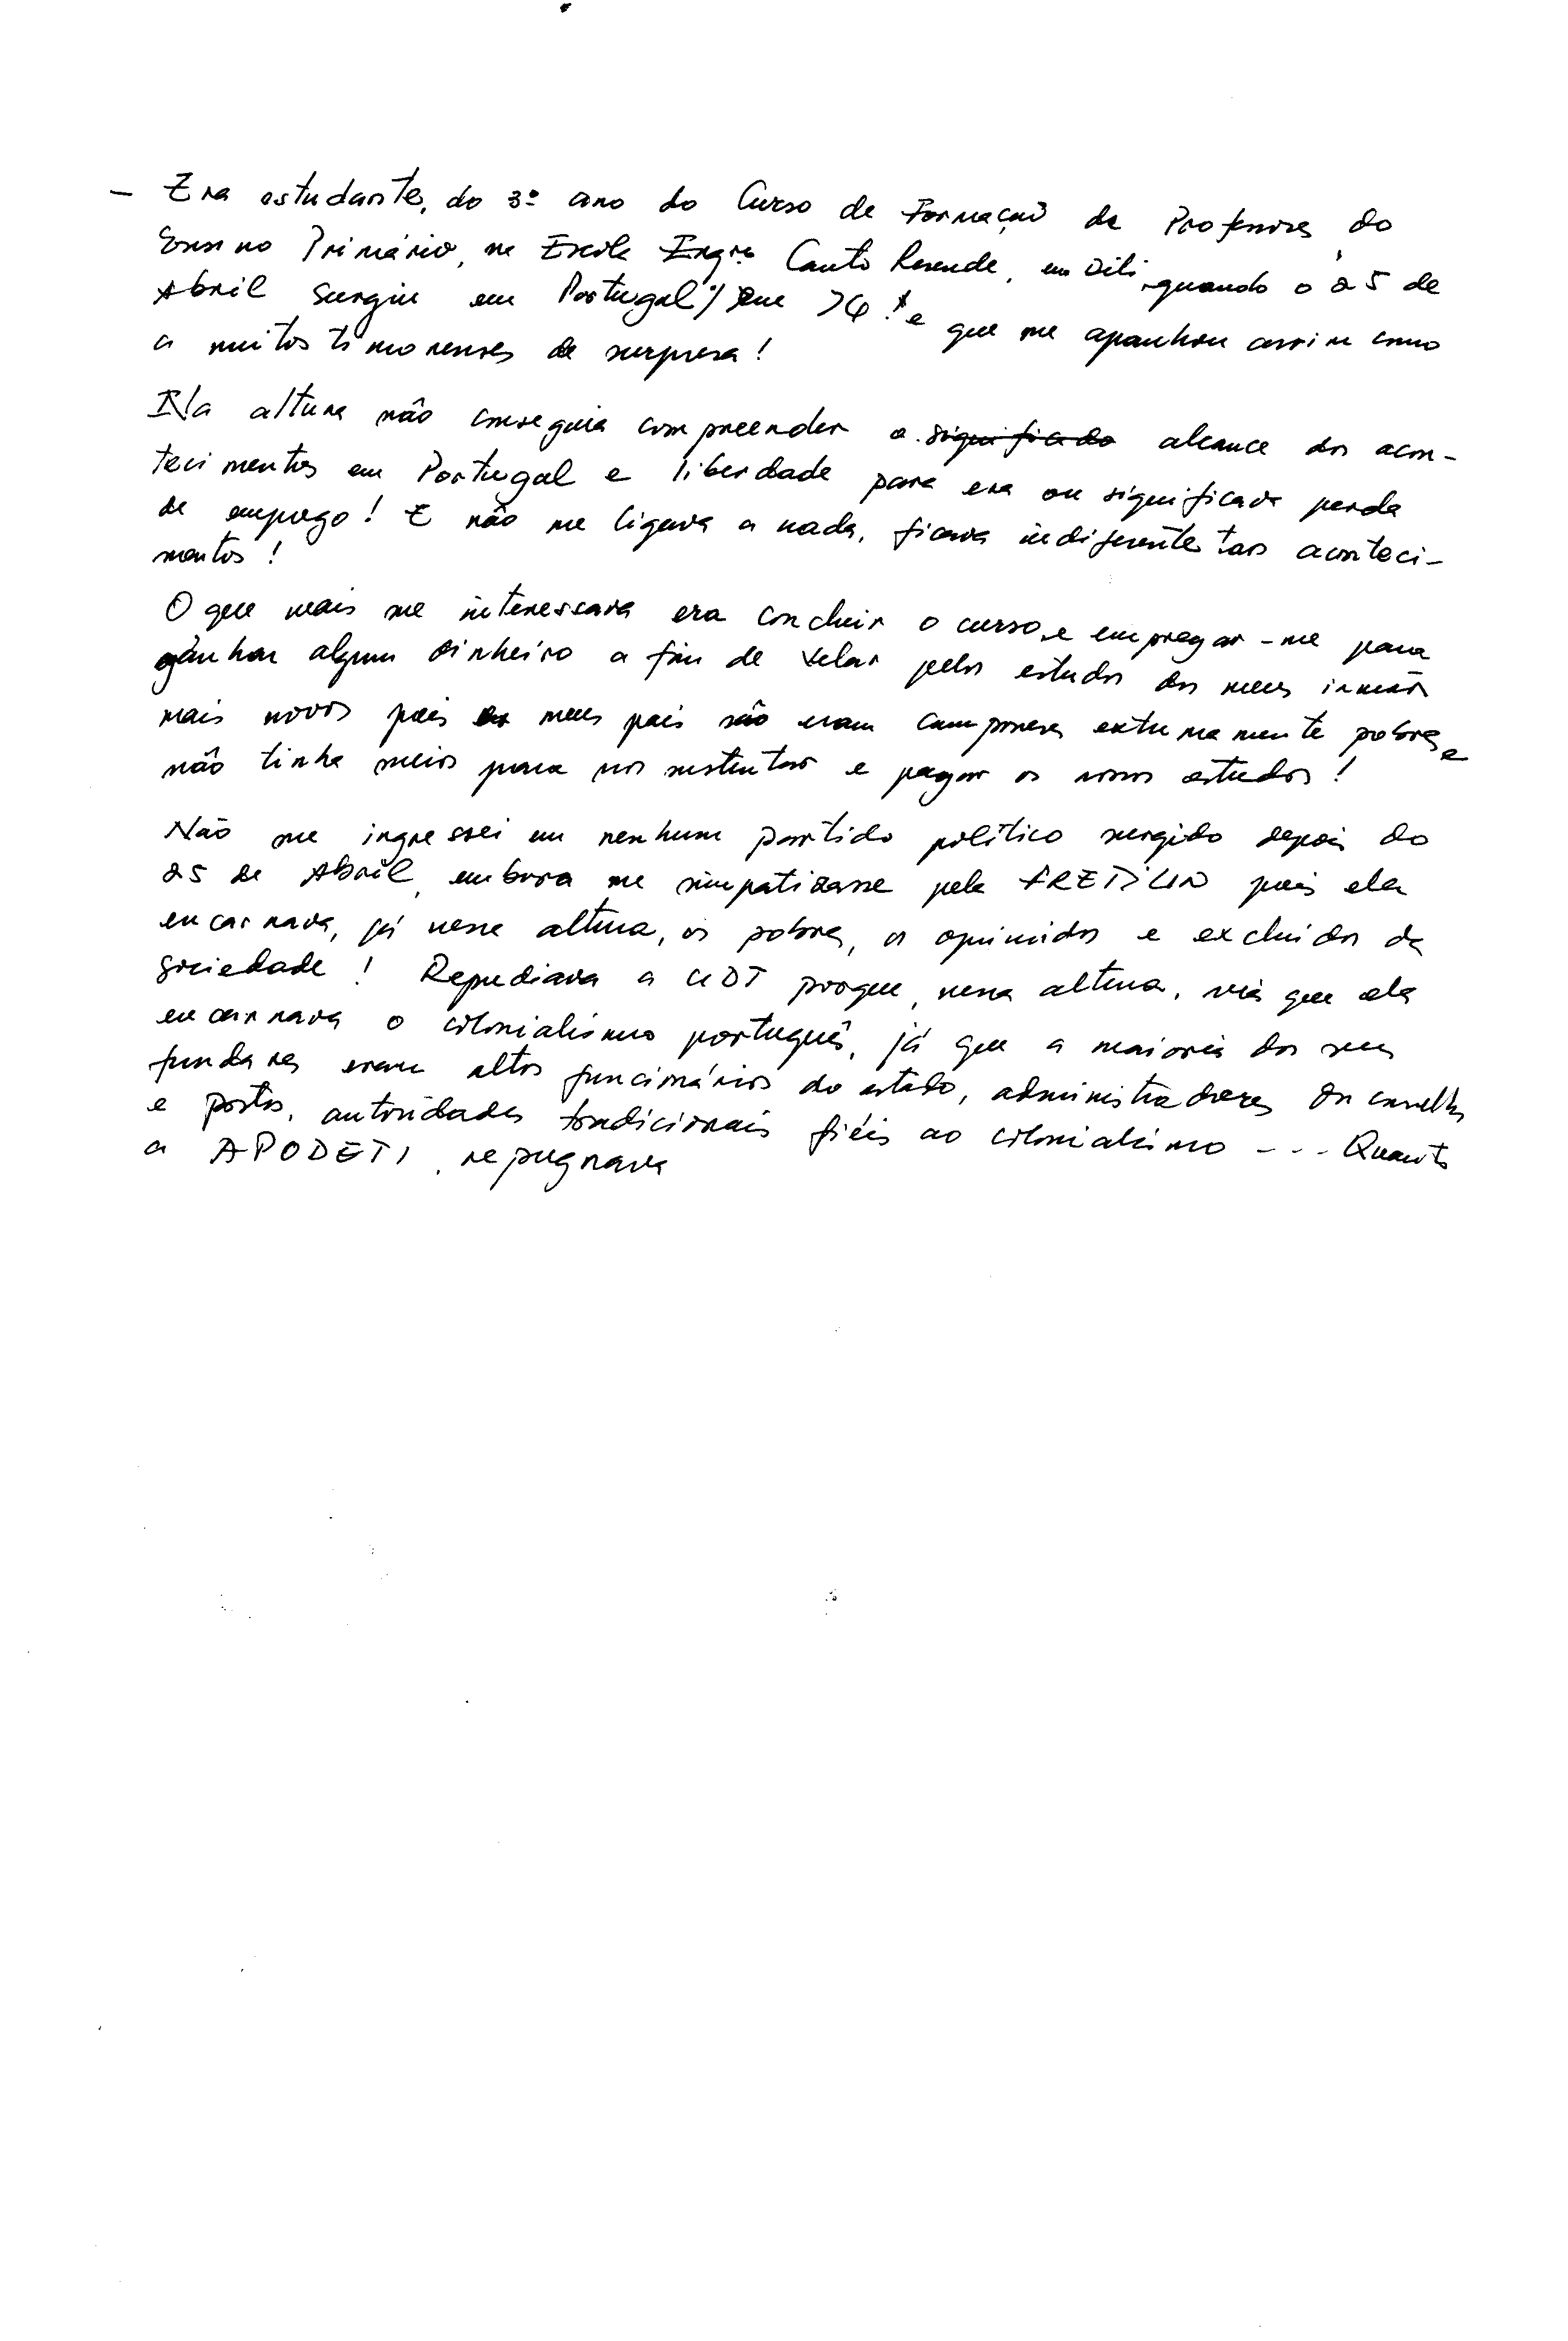 — Era estudante, do 3º ano do Curso de Formação de Professores do
Ensino Primário, na Escola Engrº Canto Resende, em Dili, quando o 25 de
Abril surgiu em Portugal, em 74! e que me apanhou assim como
a muitos timorenses de surpresa!
Na altura não conseguia compreender o significado alcance dos acon-
tecimentos em Portugal e liberdade para era ou significava perda
de emprego! E não me ligava a nada, ficava indiferente aos aconteci-
mentos!
O que mais me interessava era concluir o curso e empregar-me para
ganhar algum dinheiro a fim de velar pelos estudos dos meus irmãos
mais novos pois os meus pais não eram camponeses extremamente pobres e
não tinha meios para nos sustentar e pagar os nossos estudos!
Não me ingressei em nenhum partido político surgido depois do
25 de Abril, embora me simpatizasse pela FRETILIN pois ela
encarnava, já nessa altura, os pobres, os oprimidos e excluidos da
sociedade! Repudiava a UDT porque, nessa altura, via que ela
encarnava o colonialismo português, já que a maioria dos seus
fundares eram altos funcionários do estado, administradores de concelhos
e postos, autoridades tradicionais fiéis ao colonialismo --- Quanto
a APODETI, repugnava